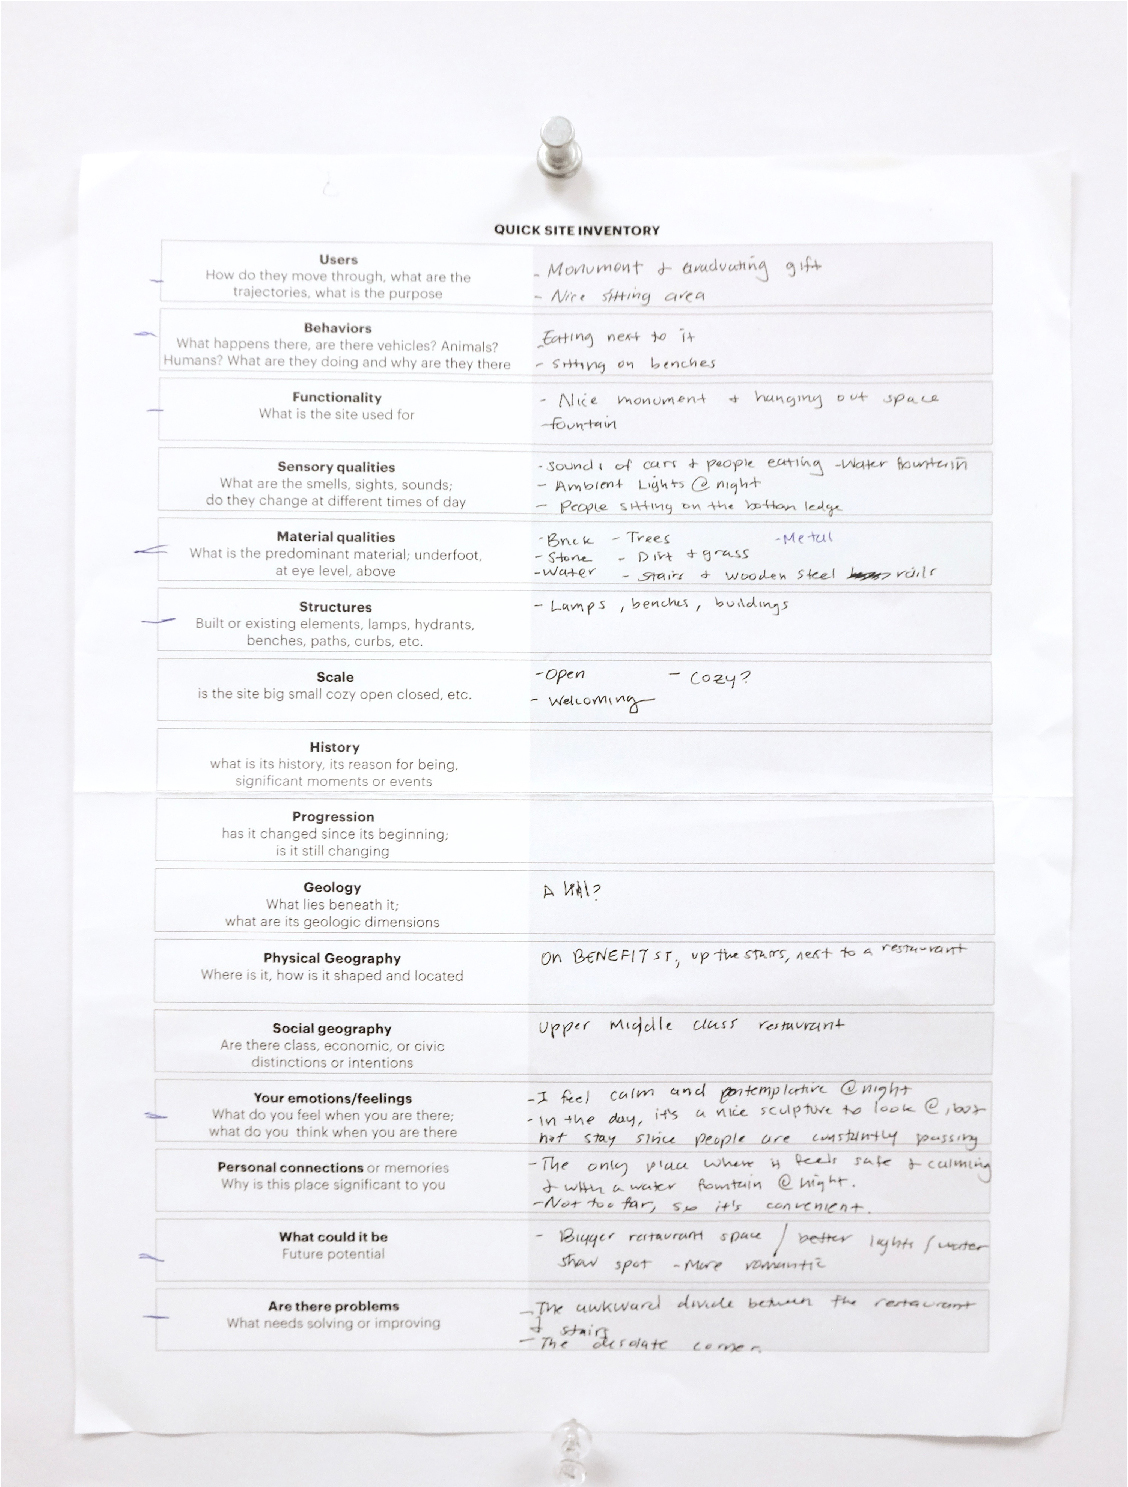 QUICK SITE INVENTORY
Users
How do they move through, what are the
trajectories, what is the purpose
- Monument + Graduating gift
- Nice sitting area
Behaviors
What happens there, are there vehicles? Animals?
Humans? What are they doing and why are they there
-Eating next to it
- Sitting on benches
Functionality
What is the site used for
- Nice monument + hanging out space
-fountain
Sensory qualities
What are the smells, sights, sounds;
do they change at different times of day
-Sounds of cars + people eating -Water fountain
- Ambient Lights @ night
- People sitting on the bottom ledge
Material qualities
What is the predominant material; underfoot,
at eye level, above
-Brick - Trees -Metal
-Stone - Dirt + grass
-Water - Stairs + wooden steel rails
Structures
Built or existing elements, lamps, hydrants,
benches, paths, curbs, etc.
- Lamps, benches, buildings
Scale
is the site big small cozy open closed, etc.
-Open - Cozy?
- Welcoming
History
what is its history, its reason for being,
significant moments or events
Progression
has it changed since its beginning;
is it still changing
Geology
What lies beneath it;
what are its geologic dimensions
A Hill?
Physical Geography
Where is it, how is it shaped and located
On BENEFIT ST, up the stairs, next to a restaurant
Social geography
Are there class, economic, or civic
distinctions or intentions
Upper Middle class restaurant
Your emotions/feelings
What do you feel when you are there;
what do you think when you are there
-I feel calm and contemplative @ night
-In the day, it's a nice sculpture to look @, but
not stay since people are constantly passing
Personal connections or memories
Why is this place significant to you
-The only place where it feels safe + calming
+ with a water fountain @ night.
-Not too far, so it's convenient.
What could it be
Future potential
- Bigger restaurant space / better lights / water
show spot - More romantic
Are there problems
What needs solving or improving
-The awkward divide between the restaurant
+ stairs
- The desolate corner.